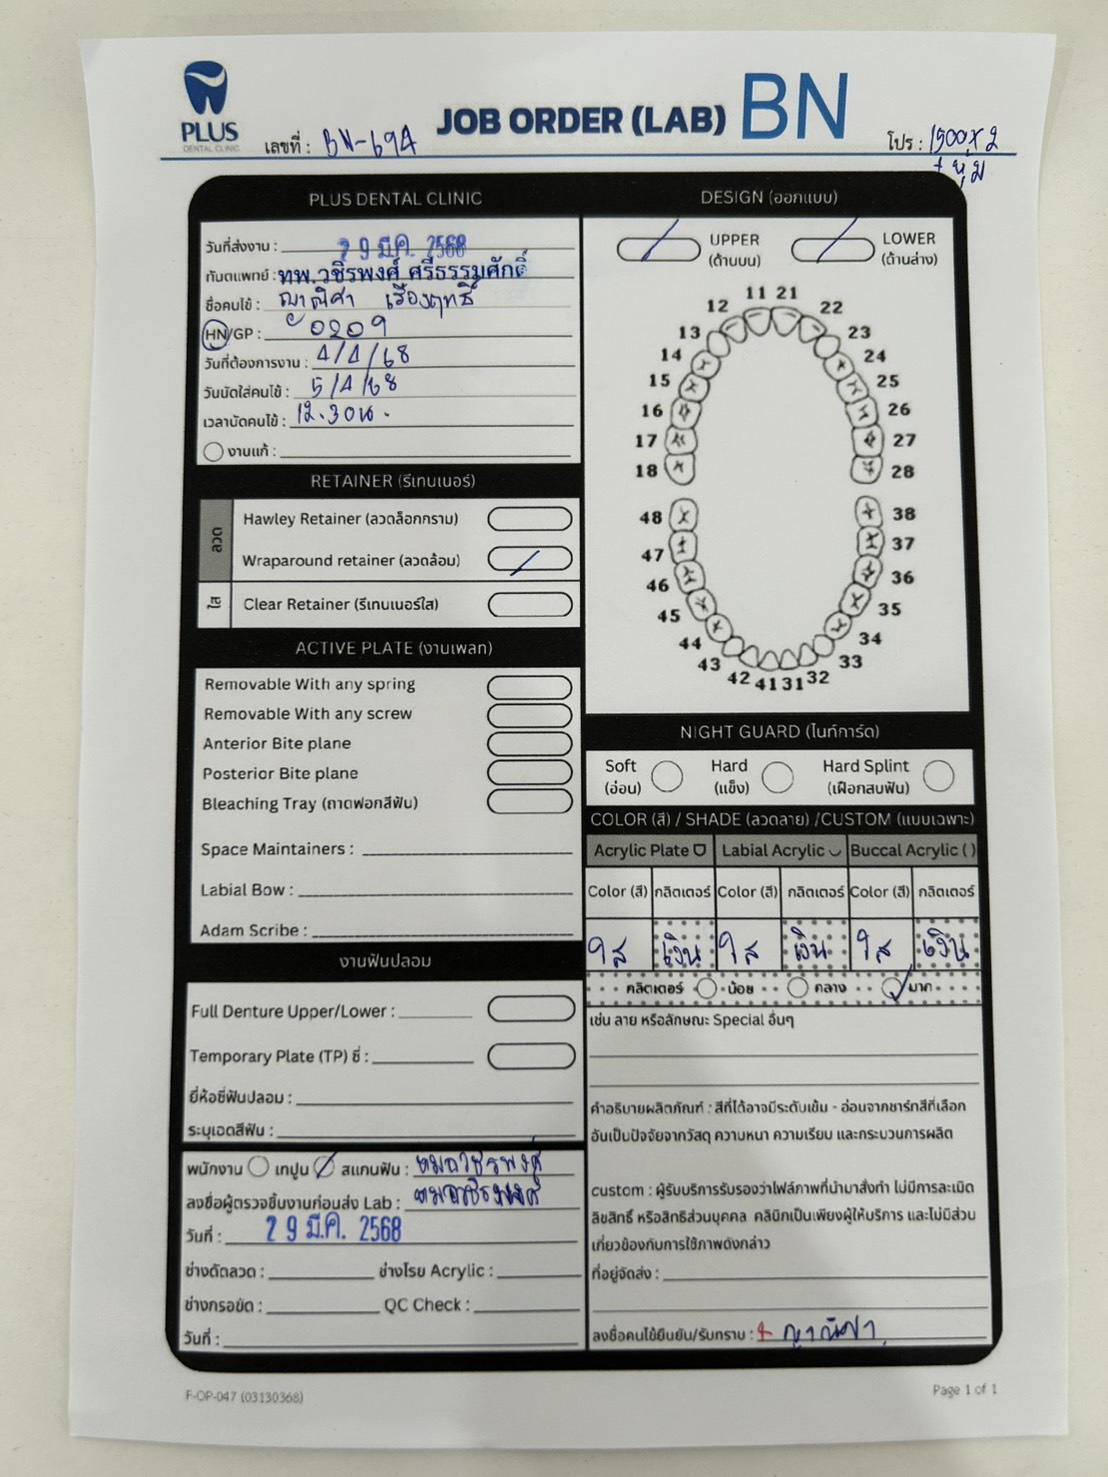 PLUS
DENTAL CLINIC
เลขที่ : BN-694
JOB ORDER (LAB) BN
โปร : 1500 x 2
+ หุ้ม
PLUS DENTAL CLINIC
วันที่ส่งงาน : 29 มี.ค. 2568
ทันตแพทย์ : ทพ.วชิรพงศ์ ศรีธรรมศักดิ์
ชื่อคนไข้ : ญาณิศา เรืองฤทธิ์
HN/GP : 0209
วันที่ต้องการงาน : 4/4/68
วันนัดใส่คนไข้ : 5/4/68
เวลานัดคนไข้ : 12.30น.
งานแก้ :
RETAINER (รีเทนเนอร์)
ลวด
Hawley Retainer (ลวดล็อกกราม)
Wraparound retainer (ลวดล้อม)
ใส
Clear Retainer (รีเทนเนอร์ใส)
ACTIVE PLATE (งานเพลท)
Removable With any spring
Removable With any screw
Anterior Bite plane
Posterior Bite plane
Bleaching Tray (ถาดฟอกสีฟัน)
Space Maintainers :
Labial Bow :
Adam Scribe :
งานฟันปลอม
Full Denture Upper/Lower :
Temporary Plate (TP) ซี่ :
ยี่ห้อซี่ฟันปลอม :
ระบุเฉดสีฟัน :
พนักงาน เทปูน สแกนฟัน : หมอวชิรพงศ์
ลงชื่อผู้ตรวจชิ้นงานก่อนส่ง Lab : หมอวชิรพงศ์
วันที่ : 29 มี.ค. 2568
ช่างดัดลวด : ช่างโรย Acrylic :
ช่างกรอขัด : QC Check :
วันที่ :
DESIGN (ออกแบบ)
UPPER
(ด้านบน)
LOWER
(ด้านล่าง)
11 21
12 22
13 23
14 24
15 25
16 26
17 27
18 28
48 38
47 37
46 36
45 35
44 34
43 33
42 41 31 32
NIGHT GUARD (ไนท์การ์ด)
Soft
(อ่อน)
Hard
(แข็ง)
Hard Splint
(เฝือกสบฟัน)
COLOR (สี) / SHADE (ลวดลาย) /CUSTOM (แบบเฉพาะ)
Acrylic Plate Labial Acrylic Buccal Acrylic ( )
Color (สี) กลิตเตอร์ Color (สี) กลิตเตอร์ Color (สี) กลิตเตอร์
ใส เงิน ใส เงิน ใส เงิน
กลิตเตอร์ น้อย กลาง มาก
เช่น ลาย หรือลักษณะ Special อื่นๆ
คำอธิบายผลิตภัณฑ์ : สีที่ได้อาจมีระดับเข้ม - อ่อนจากชาร์ทสีที่เลือก
อันเป็นปัจจัยจากวัสดุ ความหนา ความเรียบ และกระบวนการผลิต
custom : ผู้รับบริการรับรองว่าไฟล์ภาพที่นำมาสั่งทำ ไม่มีการละเมิด
ลิขสิทธิ์ หรือสิทธิส่วนบุคคล คลินิกเป็นเพียงผู้ให้บริการ และไม่มีส่วน
เกี่ยวข้องกับการใช้ภาพดังกล่าว
ที่อยู่จัดส่ง :
ลงชื่อคนไข้ยืนยัน/รับทราบ : ญาณิศา
F-OP-047 (03130368)
Page 1 of 1